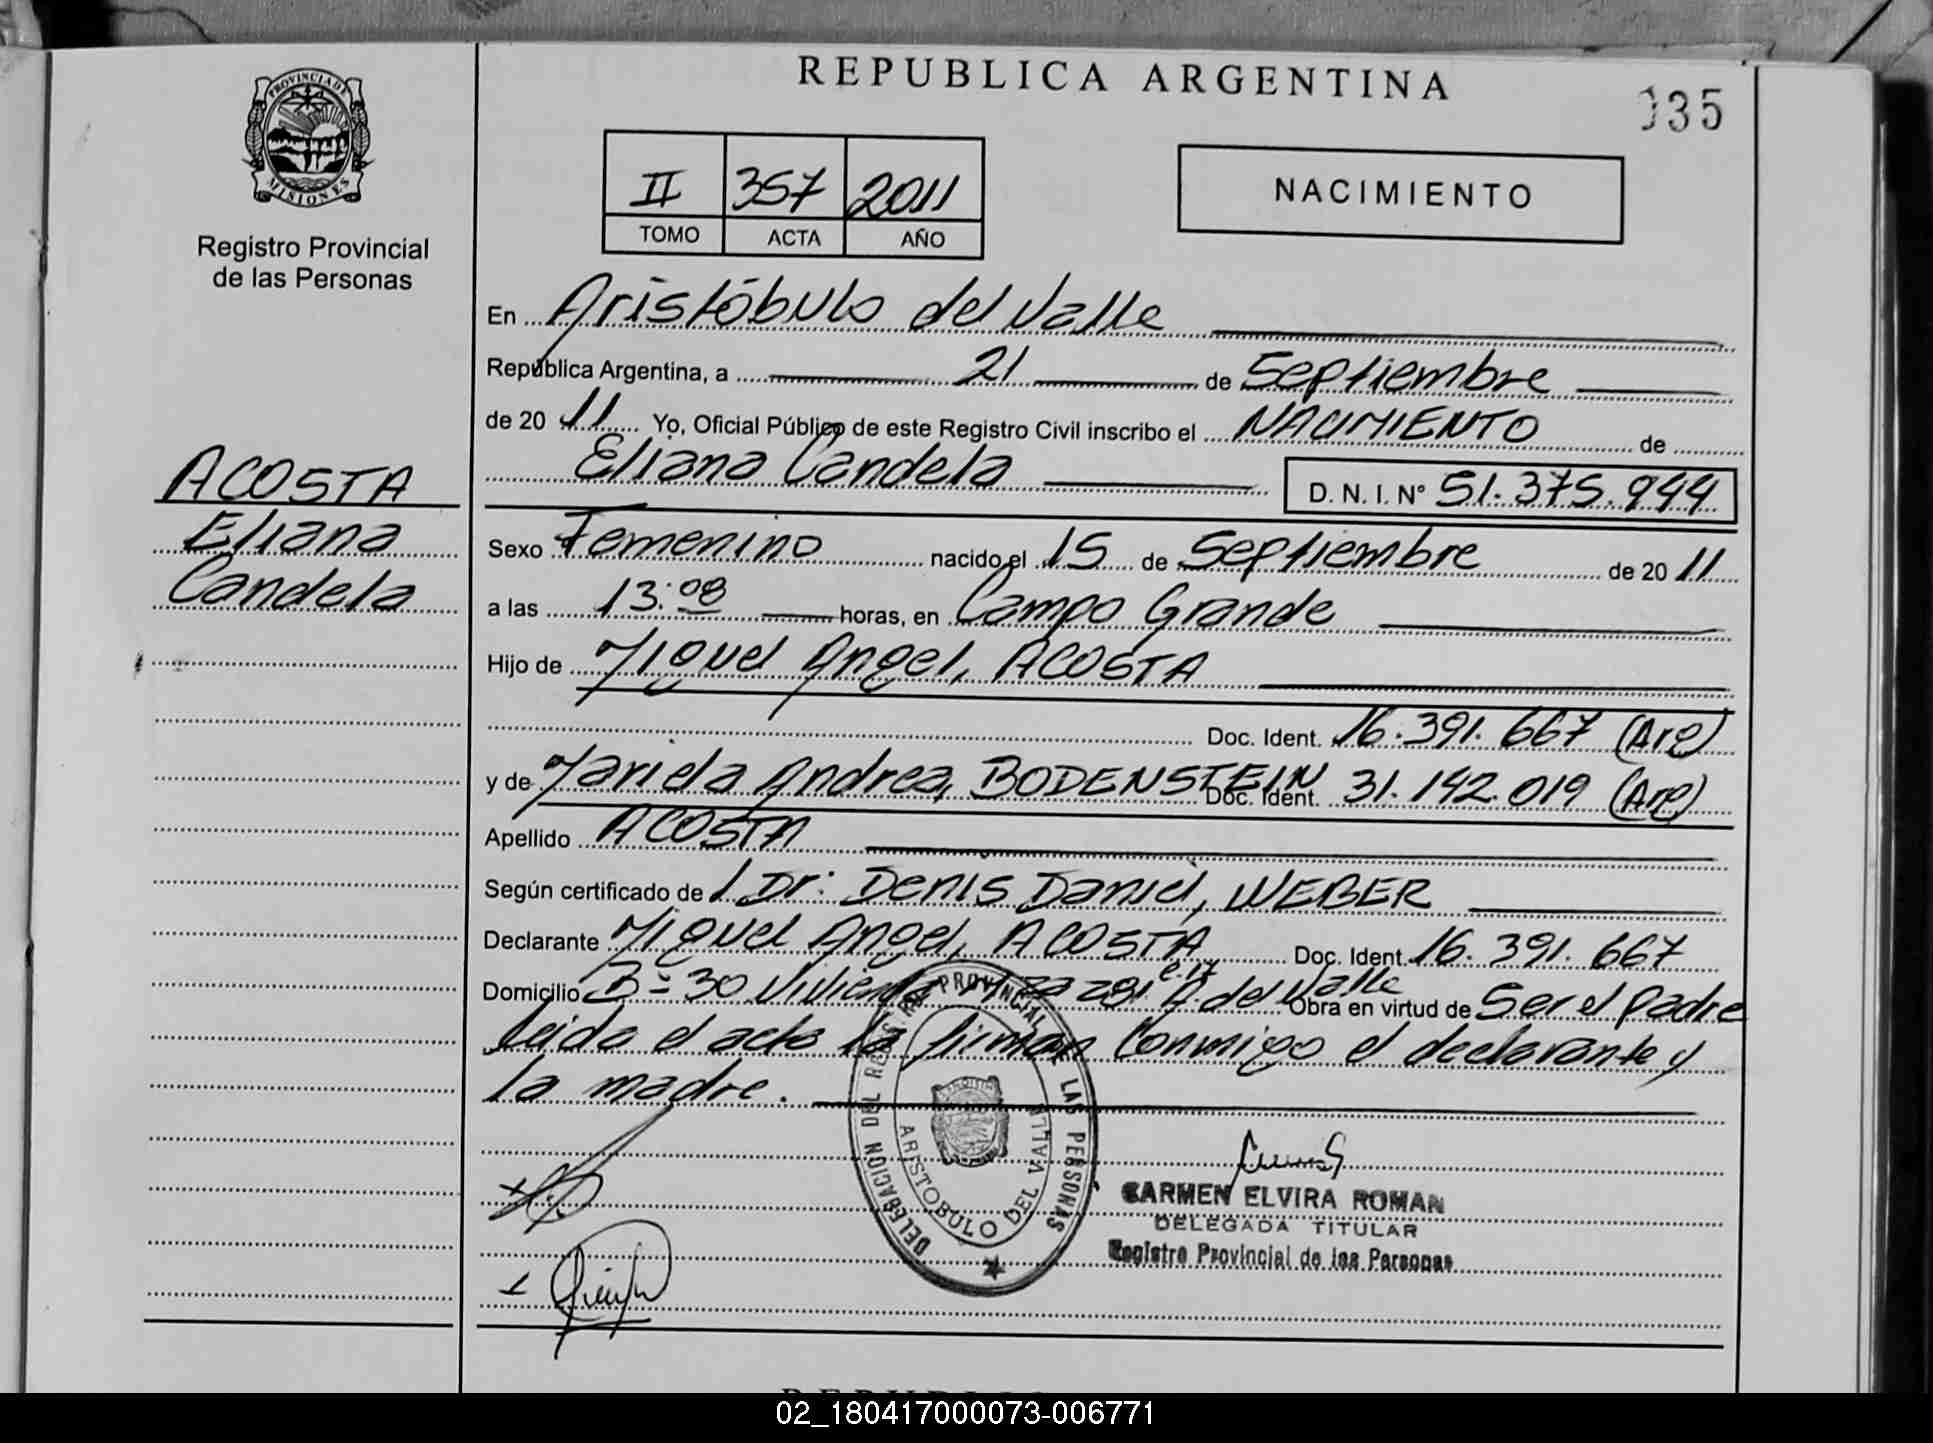 REPUBLICA ARGENTINA
035
PROVINCIA DE MISIONES
Registro Provincial
de las Personas
II 357 2011
TOMO ACTA AÑO
NACIMIENTO
En Aristóbulo del Valle
República Argentina, a 21 de Septiembre
de 20 11 Yo, Oficial Público de este Registro Civil inscribo el NACIMIENTO de
Eliana Candela D. N. I. N° 51.375.944
ACOSTA
Eliana
Candela
Sexo Femenino nacido el 15 de Septiembre de 20 11
a las 13:08 horas, en Campo Grande
Hijo de Miguel Angel, ACOSTA
Doc. Ident. 16.391.667 (Arg)
y de Mariela Andrea, BODENSTEIN Doc. Ident. 31.142.019 (Arg)
Apellido ACOSTA
Según certificado de / Dr: Denis Daniel, WEBER
Declarante Miguel Angel, ACOSTA Doc. Ident. 16.391.667
Domicilio B= 30 Vivienda A. del Valle Obra en virtud de Ser el padre
leida el acta la firman conmigo el declarante y
la madre.
DELEGACION DEL REGISTRO PROVINCIAL DE LAS PERSONAS
ARISTOBULO DEL VALLE
CARMEN ELVIRA ROMAN
DELEGADA TITULAR
Registro Provincial de las Personas
02_180417000073-006771